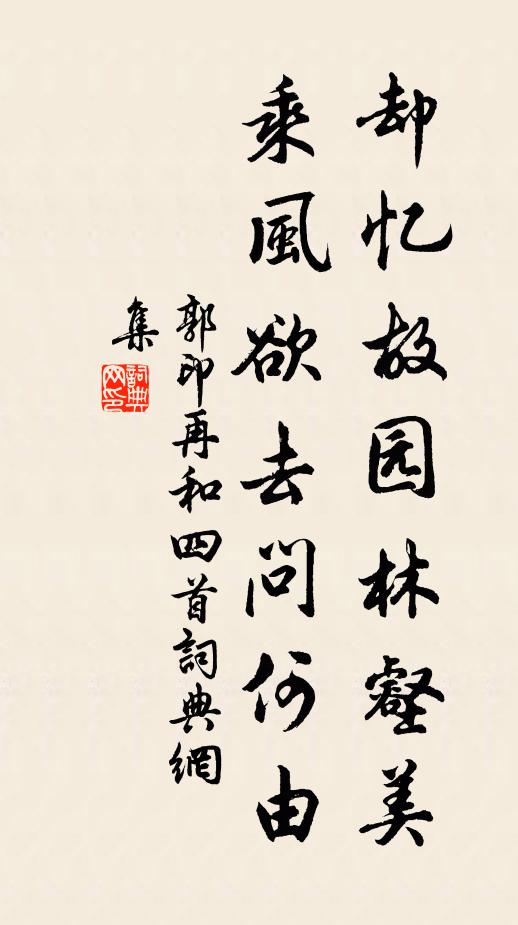 却忆故园林壑美
乘風欲去問何由
郭印再和四首詞典網
集
詞典
网印